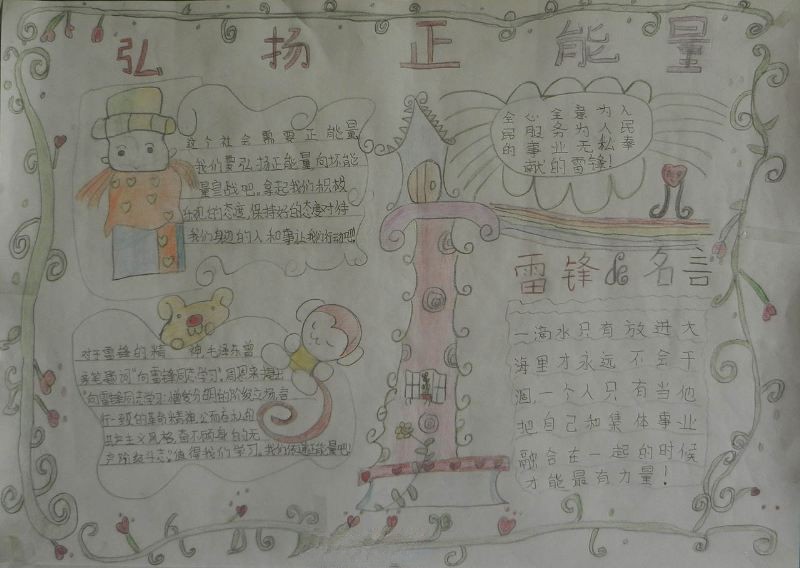 弘扬正能量
这个社会需要正能量
我们要弘扬正能量,向坏能
量宣战吧。拿起我们积极
乐观的态度,保持好的态度对待
我们身边的人和事让我们行动吧!
全心全意为人
民服务为人民
的事业无私奉
献的雷锋!
雷锋的名言
一滴水只有放进大
海里才永远不会干
涸,一个人只有当他
把自己和集体事业
融合在一起的时候
才能最有力量!
对于雷锋的精神,毛泽东曾
亲笔题词“向雷锋同志学习”周恩来提出
“向雷锋同志学习”憎爱分明的阶级立场,言
行一致的革命精神,公而忘私的
共产主义风格,奋不顾身的无
产阶级斗志”值得我们学习。我们传递正能量吧!